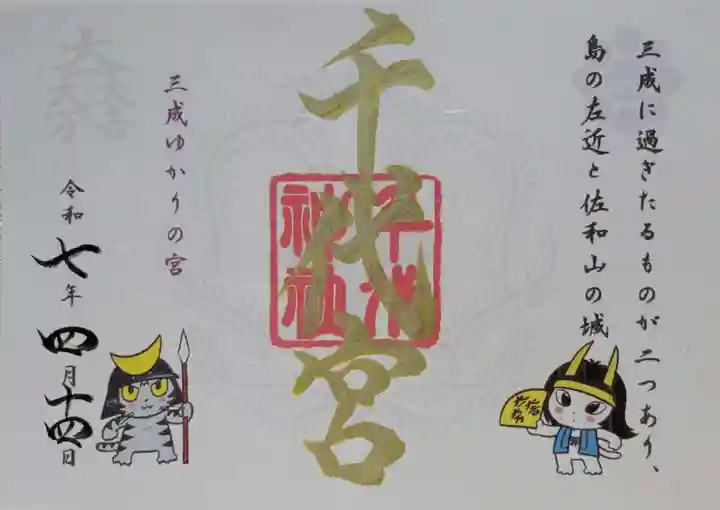 三成に過ぎたるものが二つあり、
島の左近と佐和山の城
千代宮
千代神社
三成ゆかりの宮
令和七年四月十四日
大一大万大吉